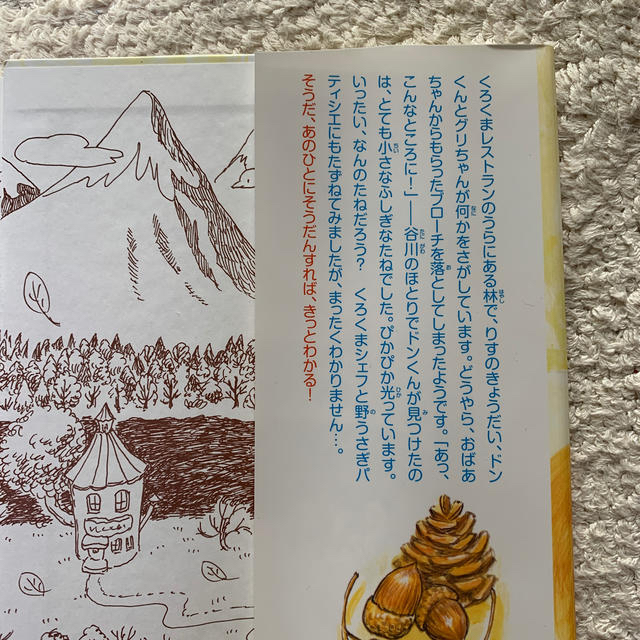 くろくまレストランのうらにある林で、りすのきょうだい、ドン
くんとグリちゃんが何かをさがしています。どうやら、おばあ
ちゃんからもらったブローチを落としてしまったようです。「あっ、
こんなところに！」──谷川のほとりでドンくんが見つけたの
は、とても小さなふしぎなたねでした。ぴかぴか光っています。
いったい、なんのたねだろう？　くろくまシェフと野うさぎパ
ティシエにもたずねてみましたが、まったくわかりません…。
そうだ、あのひとにそうだんすれば、きっとわかる！